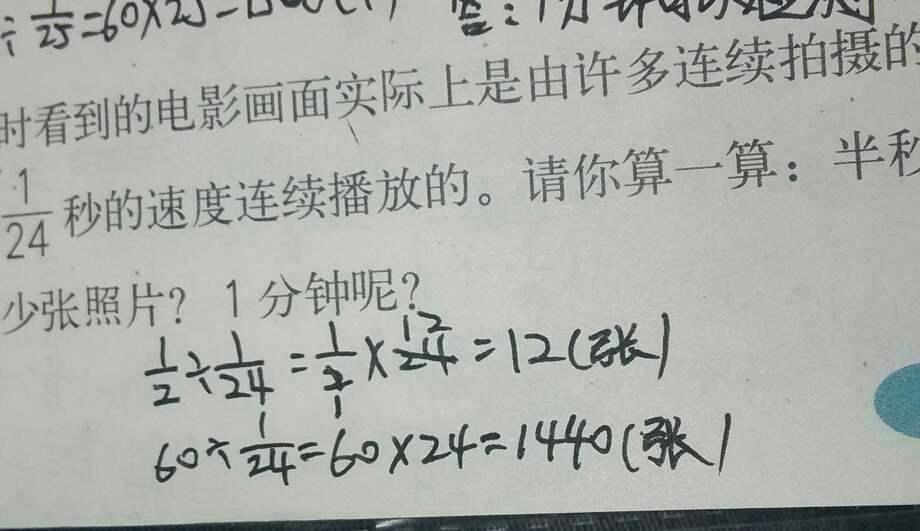 ÷1/25=60×25=1500
时看到的电影画面实际上是由许多连续拍摄的
1/24秒的速度连续播放的。请你算一算：半秒
少张照片？1分钟呢？
1/2÷1/24=1/2×24=12(张)
60÷1/24=60×24=1440(张)